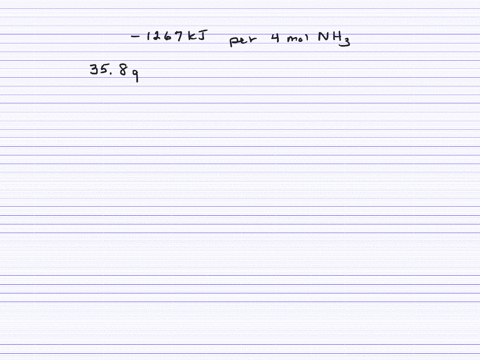 -1267 kJ per 4 mol NH3
35.8g